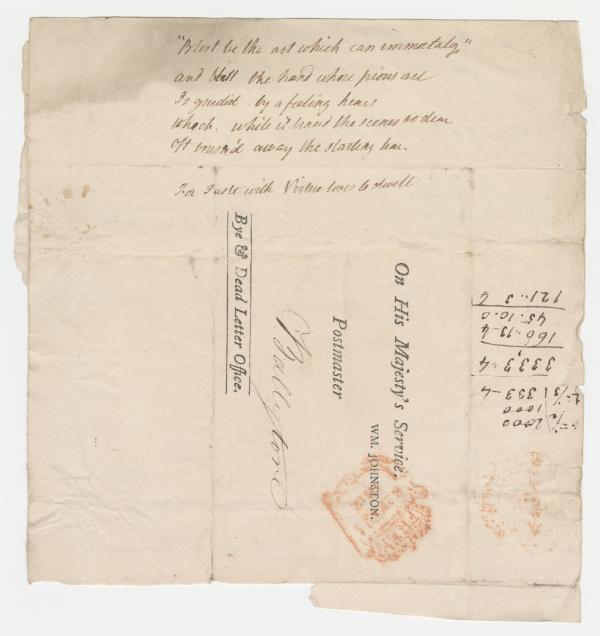 "Blest be the art which can immortalize"
and blest the hand whose pious art
Is guided by a feeling heart
Which while it traced the scenes so dear
Oft the starting tear
For Taste with Virtue loves to dwell
On His Majesty's Service.
WM. JOHNSTON.
Postmaster
Ballytore
Bye & Dead Letter Office.
2000
1000
353-4
3333-4
160..13-4
45.10.0
121..3